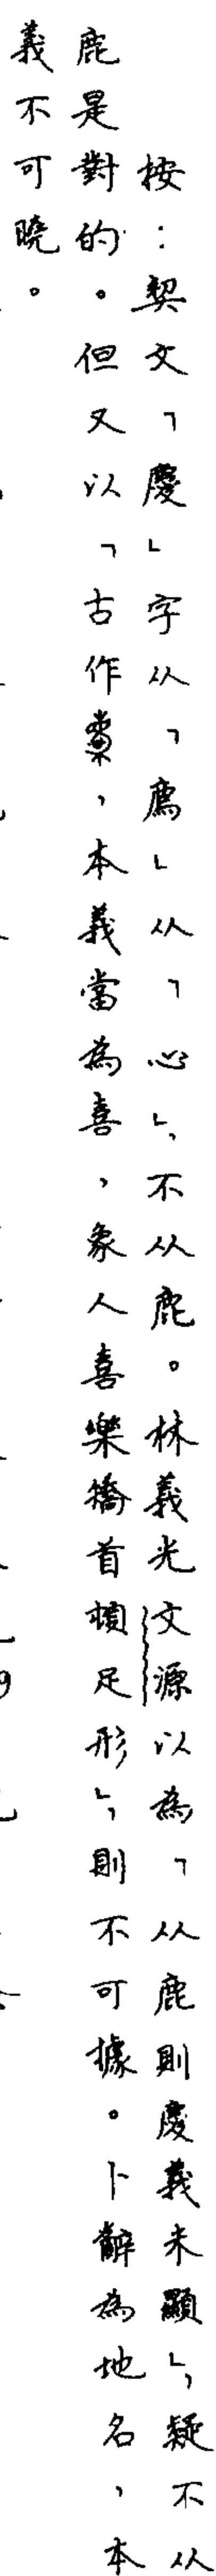 按：契文「慶」字从「廌」从「心」，不从鹿。林義光文源以為「从鹿則慶義未顯」，疑不从
鹿是對的。但又以「古作，本義當為喜，象人喜樂矯首頓足形」，則不可據。卜辭為地名，本
義不可曉。